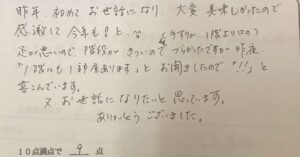 昨年、初めてお世話になり、大変美味しかったので
感激して今年も!と、
今すが、1階よりはの
足が悪いので、階段がきついのでつらかったですが昨夜
「1階にも1部屋あります」とお聞きしたので「!!」と
喜こんでいます。
又お世話になりたいと思っています。
ありがとうございました。
10点満点で 9 点